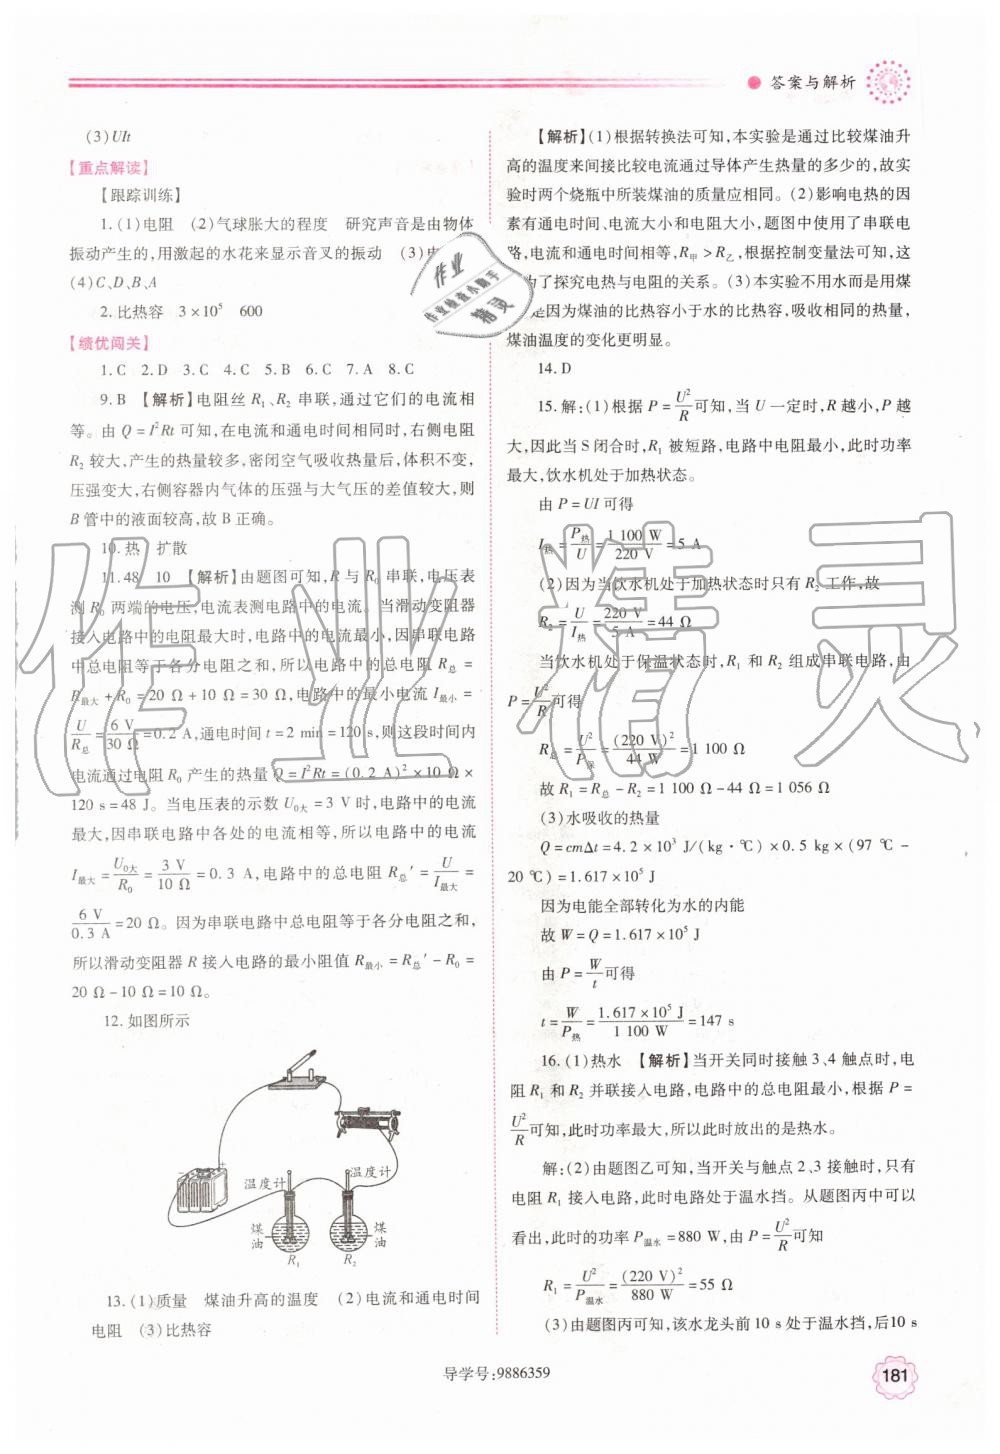 答案与解析
(3)UIt
【重点解读】
【跟踪训练】
1.(1)电阻　(2)气球胀大的程度　研究声音是由物体
振动产生的,用激起的水花来显示音叉的振动　(3)
(4)C、D、B、A
2.比热容　3×10⁵　600
【绩优闯关】
1.C　2.D　3.C　4.C　5.C　6.C　7.A　8.C
9.B　【解析】电阻丝 R₁、R₂ 串联,通过它们的电流相
等。由 Q=I²Rt 可知,在电流和通电时间相同时,右侧电阻
R₂ 较大,产生的热量较多,密闭空气吸收热量后,体积不变,
压强变大,右侧容器内气体的压强与大气压的差值较大,则
B 管中的液面较高,故 B 正确。
10.热　扩散
11.48　10　【解析】由题图可知,R 与 R₀ 串联,电压表
测 R₀ 两端的电压,电流表测电路中的电流。当滑动变阻器
接入电路中的电阻最大时,电路中的电流最小,因串联电路
中总电阻等于各分电阻之和,所以电路中的总电阻 R总=
R最大+R₀=20 Ω+10 Ω=30 Ω,电路中的最小电流 I最小=
U/R总=6 V/30 Ω=0.2 A,通电时间 t=2 min=120 s,则这段时间内
电流通过电阻 R₀ 产生的热量 Q=I²Rt=(0.2 A)²×10 Ω×
120 s=48 J。当电压表的示数 U₀大=3 V 时,电路中的电流
最大,因串联电路中各处的电流相等,所以电路中的电流
I最大=U₀大/R₀=3 V/10 Ω=0.3 A,电路中的总电阻 R总′=U/I最大=
6 V/0.3 A=20 Ω。因为串联电路中总电阻等于各分电阻之和,
所以滑动变阻器 R 接入电路的最小阻值 R最小=R总′-R₀=
20 Ω-10 Ω=10 Ω。
12.如图所示
- +
温度计　温度计
煤油　煤油
R₁　R₂
13.(1)质量　煤油升高的温度　(2)电流和通电时间
电阻　(3)比热容
【解析】(1)根据转换法可知,本实验是通过比较煤油升
高的温度来间接比较电流通过导体产生热量的多少的,故实
验时两个烧瓶中所装煤油的质量应相同。(2)影响电热的因
素有通电时间、电流大小和电阻大小,题图中使用了串联电
路,电流和通电时间相等,R甲>R乙,根据控制变量法可知,这
为了探究电热与电阻的关系。(3)本实验不用水而是用煤
是因为煤油的比热容小于水的比热容,吸收相同的热量,
煤油温度的变化更明显。
14.D
15.解:(1)根据 P=U²/R可知,当 U 一定时,R 越小,P 越
大,因此当 S 闭合时,R₁ 被短路,电路中电阻最小,此时功率
最大,饮水机处于加热状态。
由 P=UI 可得
I热=P热/U=1 100 W/220 V=5 A
(2)因为当饮水机处于加热状态时只有 R₂ 工作,故
R₂=U/I热=220 V/5 A=44 Ω
当饮水机处于保温状态时,R₁ 和 R₂ 组成串联电路,由
P=U²/R可得
R总=U²/P保=(220 V)²/44 W=1 100 Ω
故 R₁=R总-R₂=1 100 Ω-44 Ω=1 056 Ω
(3)水吸收的热量
Q=cmΔt=4.2×10³ J/(kg·℃)×0.5 kg×(97 ℃-
20 ℃)=1.617×10⁵ J
因为电能全部转化为水的内能
故 W=Q=1.617×10⁵ J
由 P=W/t可得
t=W/P热=1.617×10⁵ J/1 100 W=147 s
16.(1)热水　【解析】当开关同时接触3、4触点时,电
阻 R₁ 和 R₂ 并联接入电路,电路中的总电阻最小,根据 P=
U²/R可知,此时功率最大,所以此时放出的是热水。
解:(2)由题图乙可知,当开关与触点2、3接触时,只有
电阻 R₁ 接入电路,此时电路处于温水挡。从题图丙中可以
看出,此时的功率 P温水=880 W,由 P=U²/R可知
R₁=U²/P温水=(220 V)²/880 W=55 Ω
(3)由题图丙可知,该水龙头前10 s处于温水挡,后10 s
导学号:9886359
181
作业
作业检查小助手
精灵
作业精灵